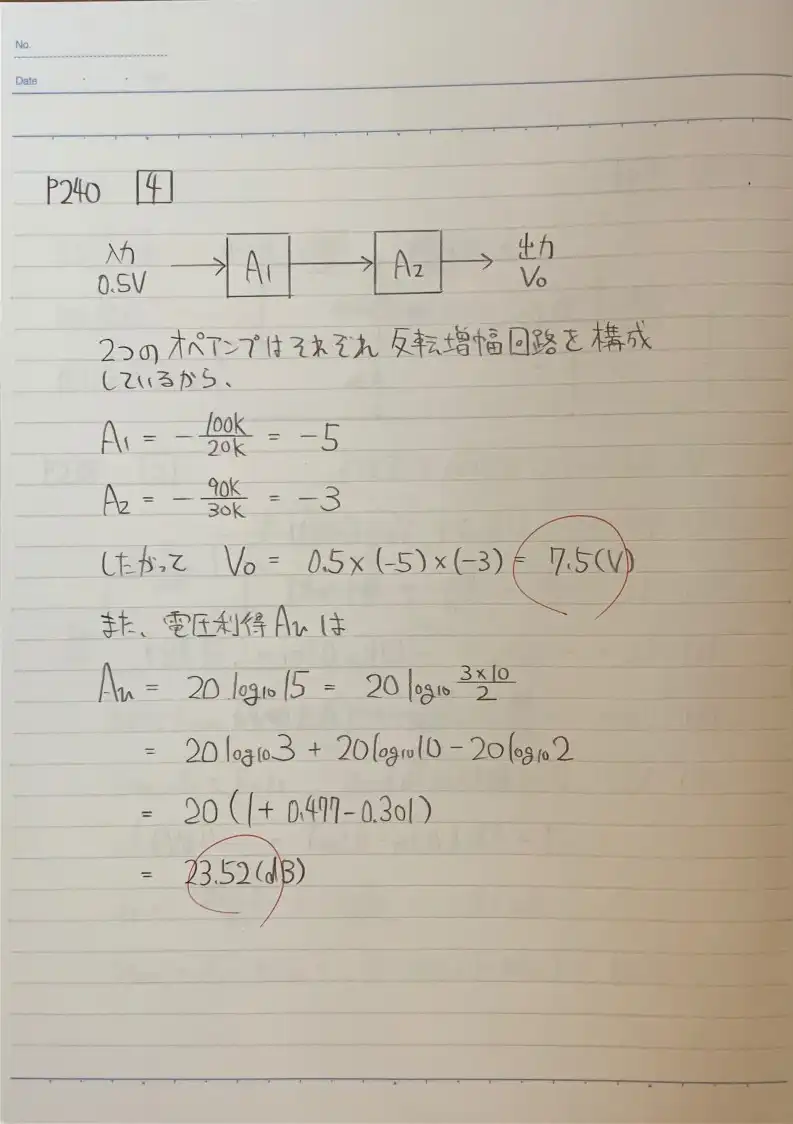 No.
Date
P240 4
入力 0.5V A₁ A₂ 出力 Vo
2つのオペアンプはそれぞれ反転増幅回路を構成
しているから、
A₁ = - 100k/20k = -5
A₂ = - 90k/30k = -3
したがって Vo = 0.5×(-5)×(-3) = 7.5(V)
また、電圧利得Aᵤは
Aᵤ = 20log₁₀15 = 20log₁₀ 3×10/2
= 20log₁₀3 + 20log₁₀10 - 20log₁₀2
= 20(1+0.477-0.301)
= 23.52(dB)